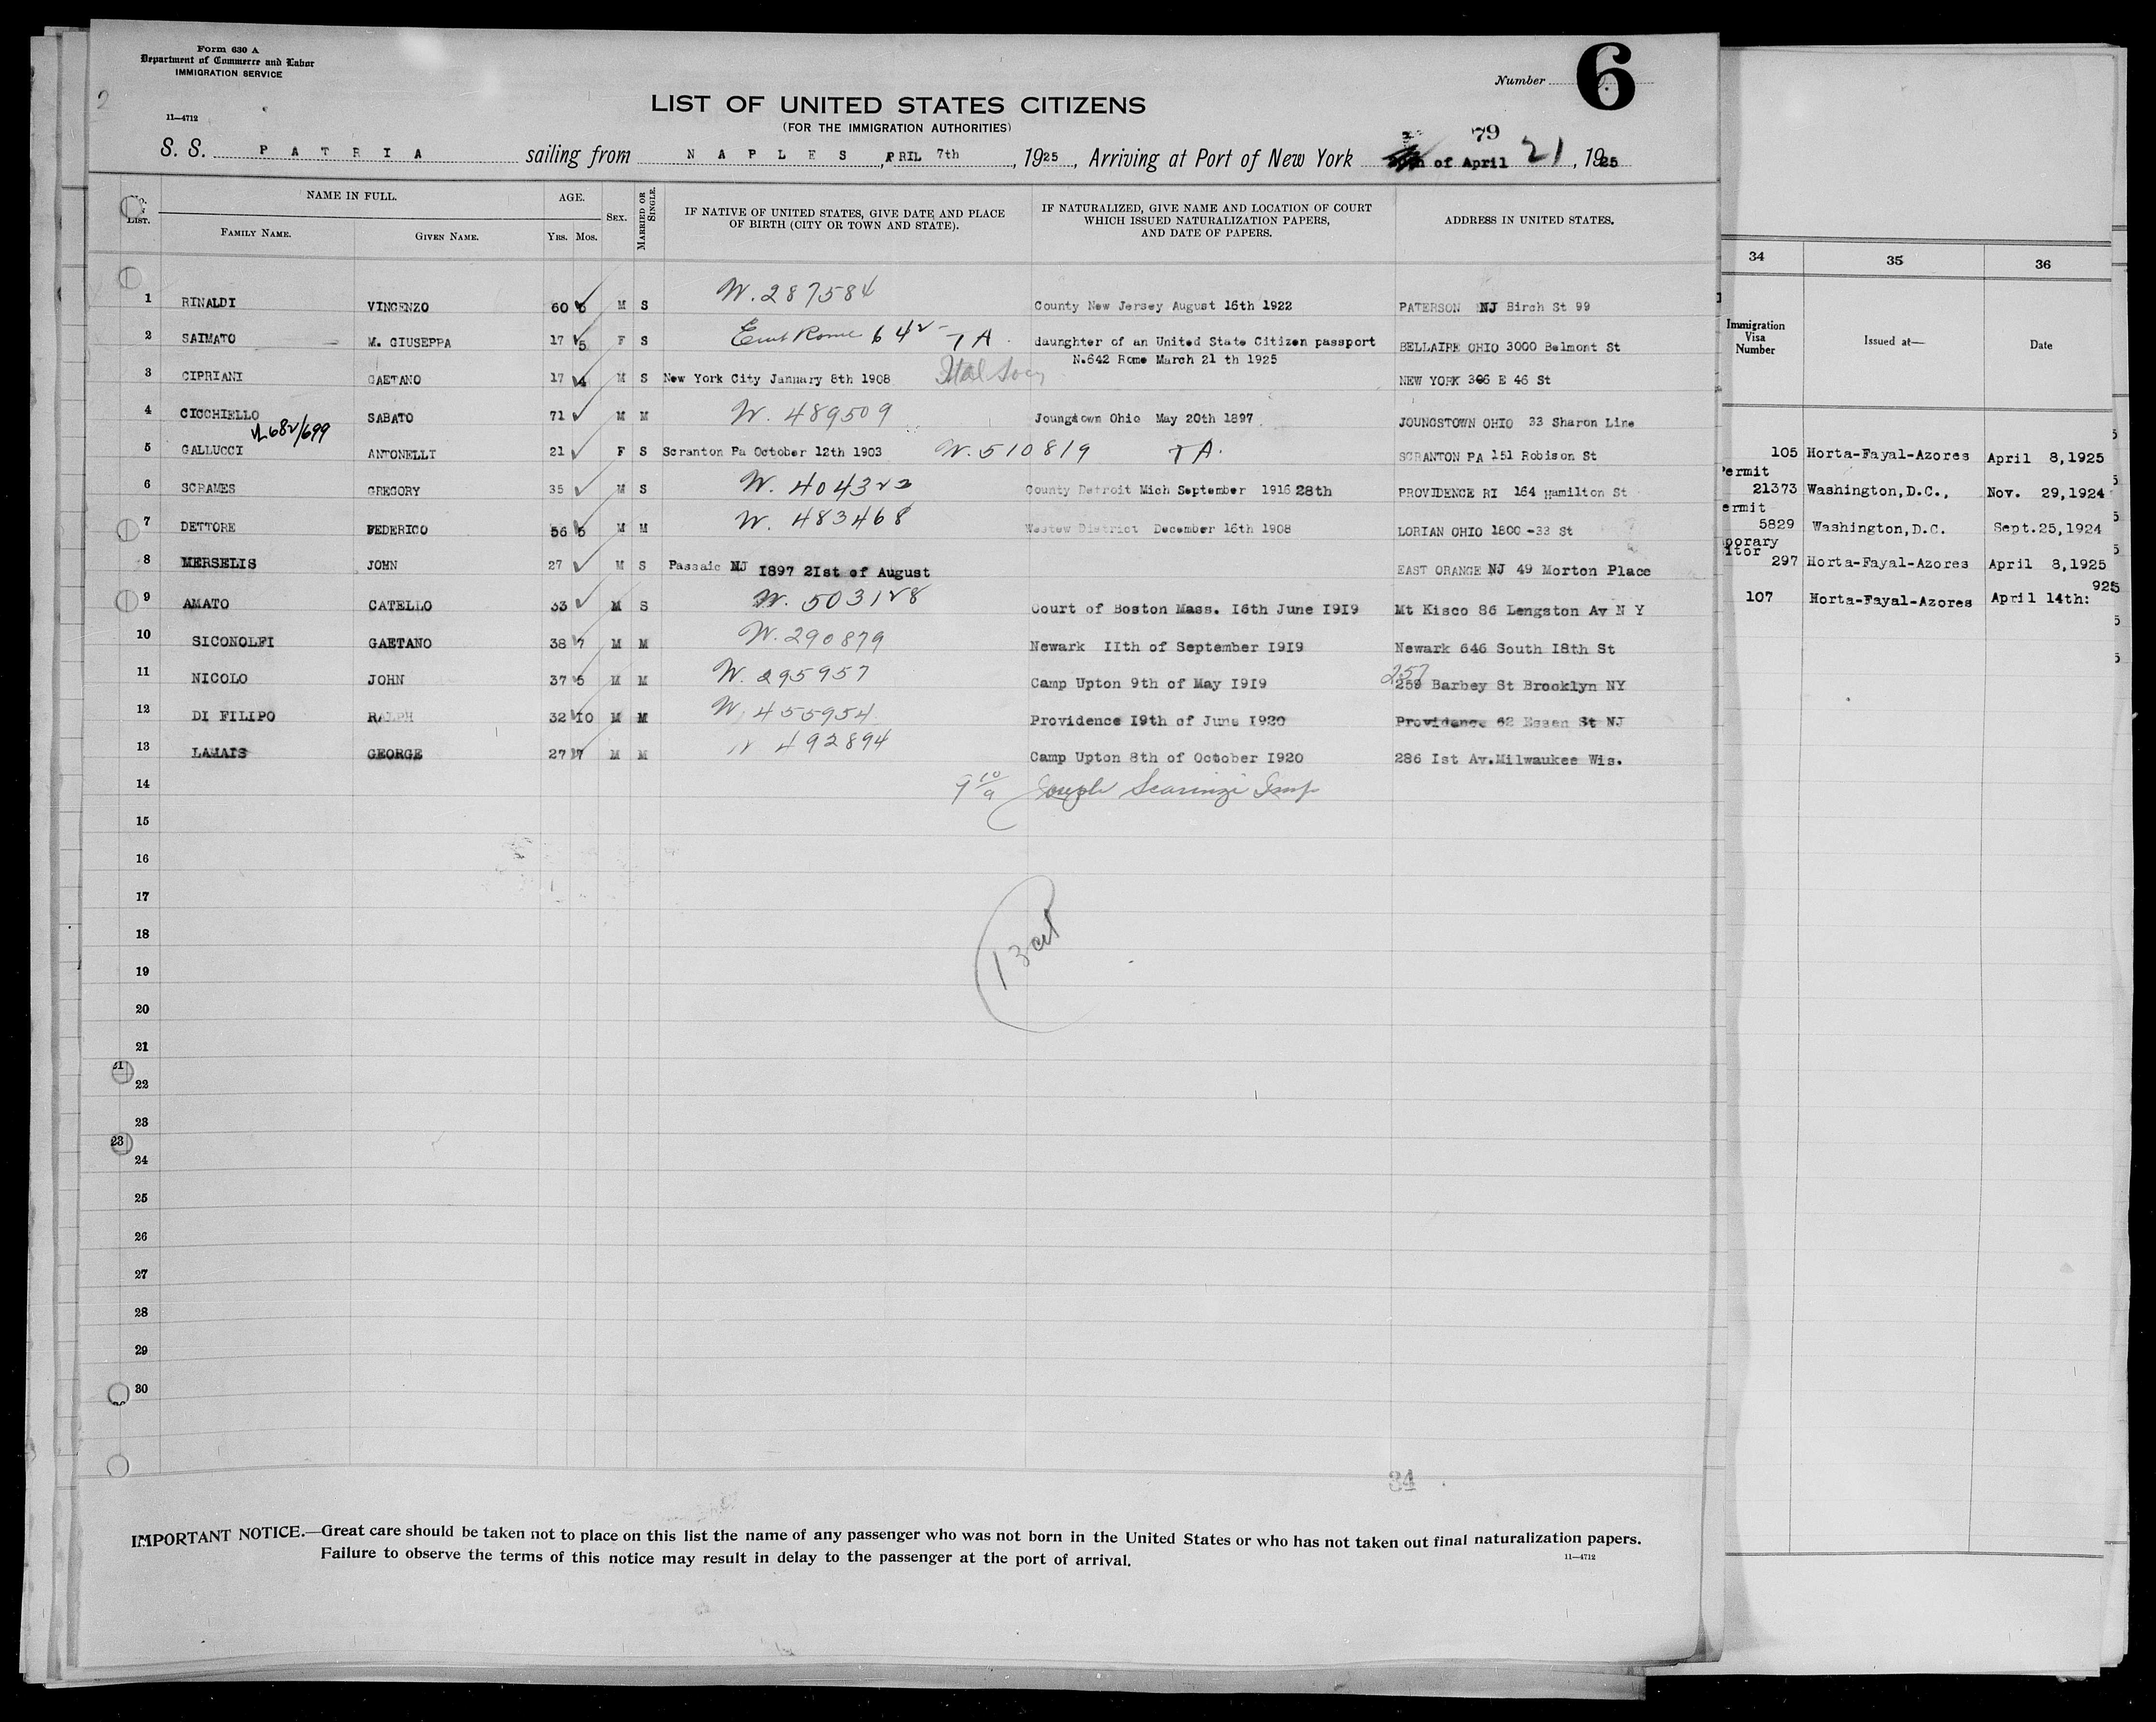 Form 630 A
Department of Commerce and Labor
IMMIGRATION SERVICE
2
11—4712
Number 6
LIST OF UNITED STATES CITIZENS
(FOR THE IMMIGRATION AUTHORITIES)
79
S. S. PATRIA sailing from NAPLES, PRIL 7th, 1925, Arriving at Port of New York of April 21, 1925
LIST.
NAME IN FULL.
FAMILY NAME.
GIVEN NAME.
AGE.
YRS. MOS.
SEX.
MARRIED OR SINGLE.
IF NATIVE OF UNITED STATES, GIVE DATE AND PLACE
OF BIRTH (CITY OR TOWN AND STATE).
IF NATURALIZED, GIVE NAME AND LOCATION OF COURT
WHICH ISSUED NATURALIZATION PAPERS,
AND DATE OF PAPERS.
ADDRESS IN UNITED STATES.
1 RINALDI VINCENZO 60 M S W. 287584 County New Jersey August 16th 1922 PATERSON NJ Birch St 99
2 SAIMATO M. GIUSEPPA 17 5 F S Rome 642 TA. daunghter of an United State Citizen passport BELLAIRE OHIO 3000 Belmont St
N.642 Rome March 21 th 1925
3 CIPRIANI GAETANO 17 4 M S New York City Jannary 8th 1908 NEW YORK 306 E 46 St
4 CICCHIELLO SABATO 71 M M W. 489509 Joungstown Ohio May 20th 1897 JOUNGSTOWN OHIO 33 Sharon Line
682/699
5 GALLUCCI ANTONELLI 21 F S Scranton Pa October 12th 1903 W. 510819 TA. SCRANTON PA 151 Robison St
6 SCRAMES GREGORY 35 M S W. 404322 County Detroit Mich September 1916 28th PROVIDENCE RI 164 Hamilton St
7 DETTORE FEDERICO 56 5 M M W. 483468 Westew District December 16th 1908 LORIAN OHIO 1800 -33 St
8 MERSELIS JOHN 27 M S Passaic NJ 1897 2Ist of August EAST ORANGE NJ 49 Morton Place
9 AMATO CATELLO 33 M S W. 503128 Court of Boston Mass. I6th June I9I9 Mt Kisco 86 Lengston Av N Y
10 SICONOLFI GAETANO 38 7 M M W. 290879 Newark IIth of September I9I9 Newark 646 South I8th St
257
11 NICOLO JOHN 37 5 M M W. 295957 Camp Upton 9th of May I9I9 259 Barbey St Brooklyn NY
12 DI FILIPO RALPH 32 IO M M W. 455954 Providence I9th of June I920 Providence 62 Essen St NJ
13 LAMAIS GEORGE 27 7 M M W 492894 Camp Upton 8th of October I920 286 Ist Av.Milwaukee Wis.
14 Joseph Scarinzi Insp
15
16
17
13 cit
18
19
20
21
21
22
23
23
24
25
26
27
28
29
30
34
IMPORTANT NOTICE.—Great care should be taken not to place on this list the name of any passenger who was not born in the United States or who has not taken out final naturalization papers.
Failure to observe the terms of this notice may result in delay to the passenger at the port of arrival.
11—4712
34 35 36
Immigration
Visa
Number
Issued at—
Date
105 Horta-Fayal-Azores April 8,1925
ermit
21373 Washington,D.C., Nov. 29,1924
ermit
5829 Washington,D.C. Sept.25,1924
porary
itor
297 Horta-Fayal-Azores April 8,1925
925
107 Horta-Fayal-Azores April 14th: